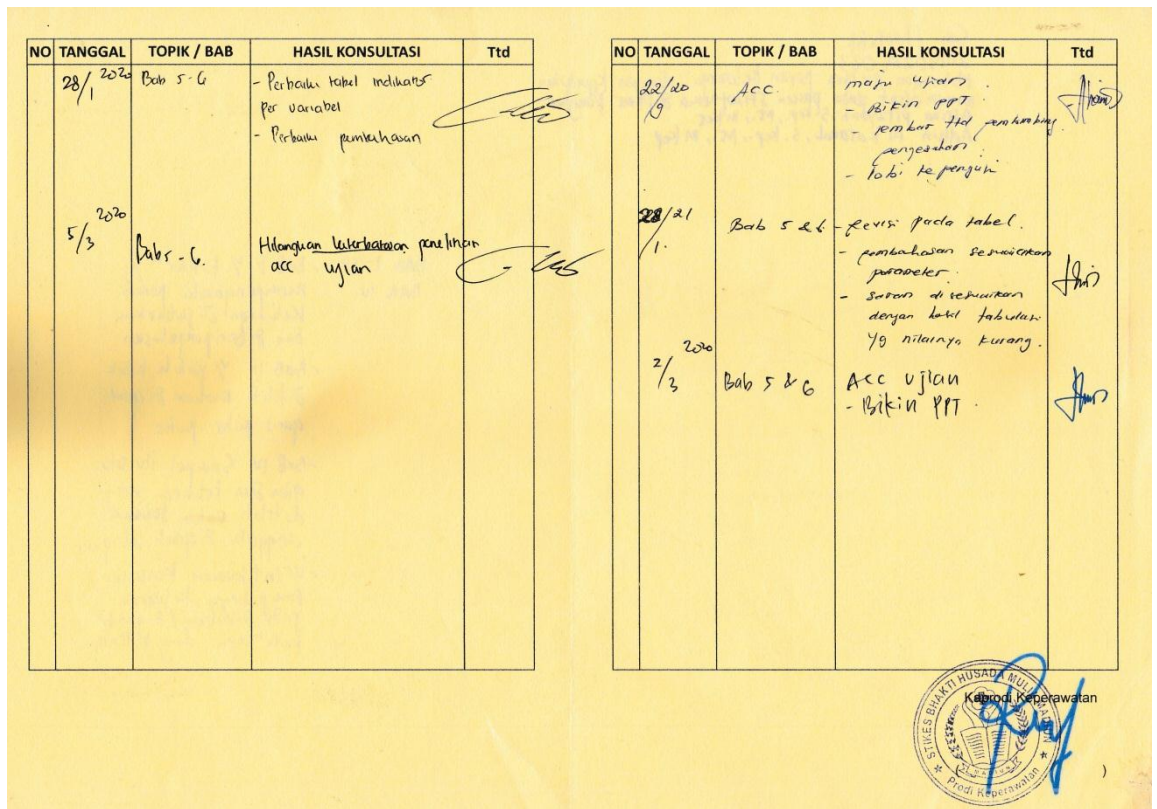 NO TANGGAL TOPIK / BAB HASIL KONSULTASI Ttd
28/1 2020 Bab 5-6 - Perbaiki tabel indikator
per variabel
- Perbaiki pembahasan
5/3 2020 Bab 5 - 6. Hilangkan keterbatasan penelitian
acc ujian
NO TANGGAL TOPIK / BAB HASIL KONSULTASI Ttd
22/20 Acc. maju ujian
- Bikin PPT.
lembar ttd pembimbing
pengesahan.
- ke penguji
28/21
1. Bab 5 & 6 - Revisi pada tabel.
- pembahasan sesuaikan
parameter.
- Saran disesuaikan
dengan hasil tabulasi
yg nilainya kurang.
2/3 2020 Bab 5 & 6 Acc Ujian
- Bikin PPT.
Kaprodi Keperawatan
STIKES BHAKTI HUSADA MULIA MADIUN
Prodi Keperawatan
)